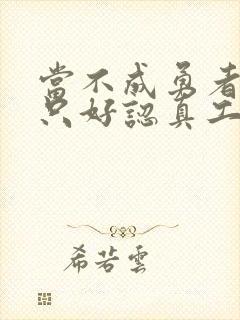 當不成勇者
只好認真工
希若雲